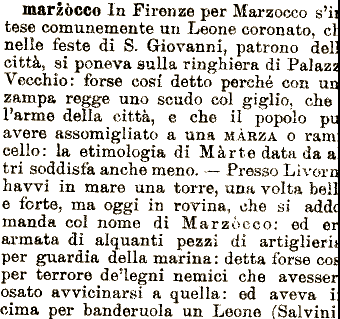 marzòcco In Firenze per Marzocco s'in
tese comunemente un Leone coronato, ch
nelle feste di S. Giovanni, patrono dell
città, si poneva sulla ringhiera di Palazz
Vecchio: forse cosí detto perché con un
zampa regge uno scudo col giglio, che
l'arme della città, e che il popolo pu
avere assomigliato a una MÀRZA o ram
cello: la etimologia di Màrte data da a
tri soddisfa anche meno. — Presso Livorn
havvi in mare una torre, una volta bell
e forte, ma oggi in rovina, che si addo
manda col nome di Marzòcco: ed er
armata di alquanti pezzi di artiglieria
per guardia della marina: detta forse cos
per terrore de'legni nemici che avesser
osato avvicinarsi a quella: ed aveva i
cima per banderuola un Leone (Salvini